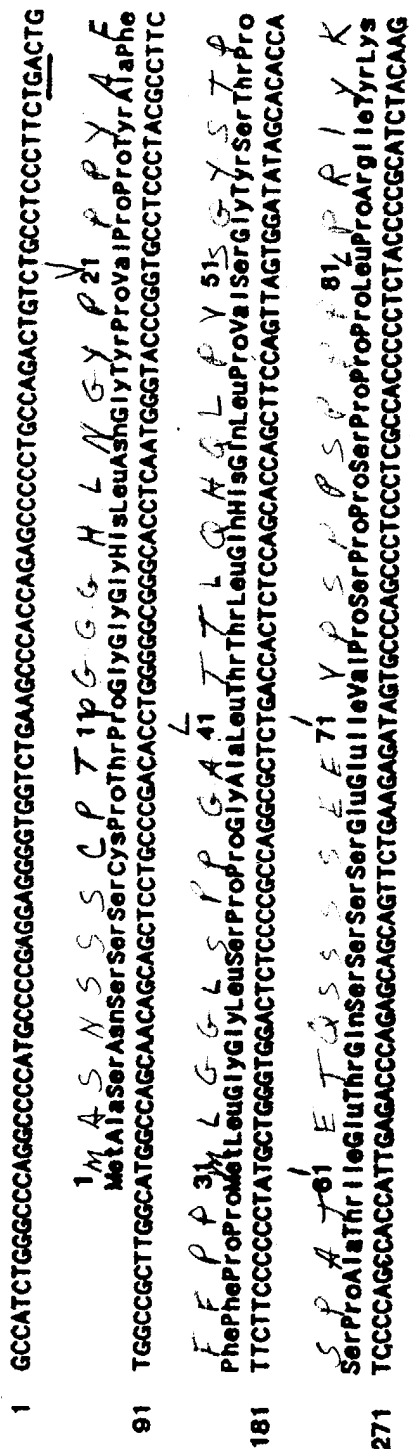 1 GCCATCTGGGCCCAGGCCCCATGCCCCGAGGAGGGGTGGTCTGAAGCCCACCAGAGCCCCCTGCCAGACTGTCTGCCTCCCTTCTGACTG
1 M A S N S S S C P T 11 P G G G H L N G Y P 21 V P P Y A F
MetAlaSerAsnSerSerSerCysProThrProGlyGlyGlyHisLeuAsnGlyTyrProValProProTyrAlaPhe
91 TGGCCGCTTGGCATGGCCAGCAACAGCAGCTCCTGCCCGACACCTGGGGGCGGGCACCTCAATGGGTACCCGGTGCCTCCCTACGCCTTC
F F P P 31 M L G G L S P P G A 41 L T T L Q H Q L P V 51 S G Y S T P
PhePheProProMetLeuGlyGlyLeuSerProProGlyAlaLeuThrThrLeuGlnHisGlnLeuProValSerGlyTyrSerThrPro
181 TTCTTCCCCCCTATGCTGGGTGGACTCTCCCCGCCAGGCGCTCTGACCACTCTCCAGCACCAGCTTCCAGTTAGTGGATATAGCACACCA
S P A T 61 I E T Q S S S S E E 71 I V P S P P S P P P 81 L P R I Y K
SerProAlaThrIleGluThrGlnSerSerSerSerGluGluIleValProSerProProSerProProProLeuProArgIleTyrLys
271 TCCCCAGCCACCATTGAGACCCAGAGCAGCAGTTCTGAAGAGATAGTGCCCAGCCCTCCCTCGCCACCCCCTCTACCCCGCATCTACAAG